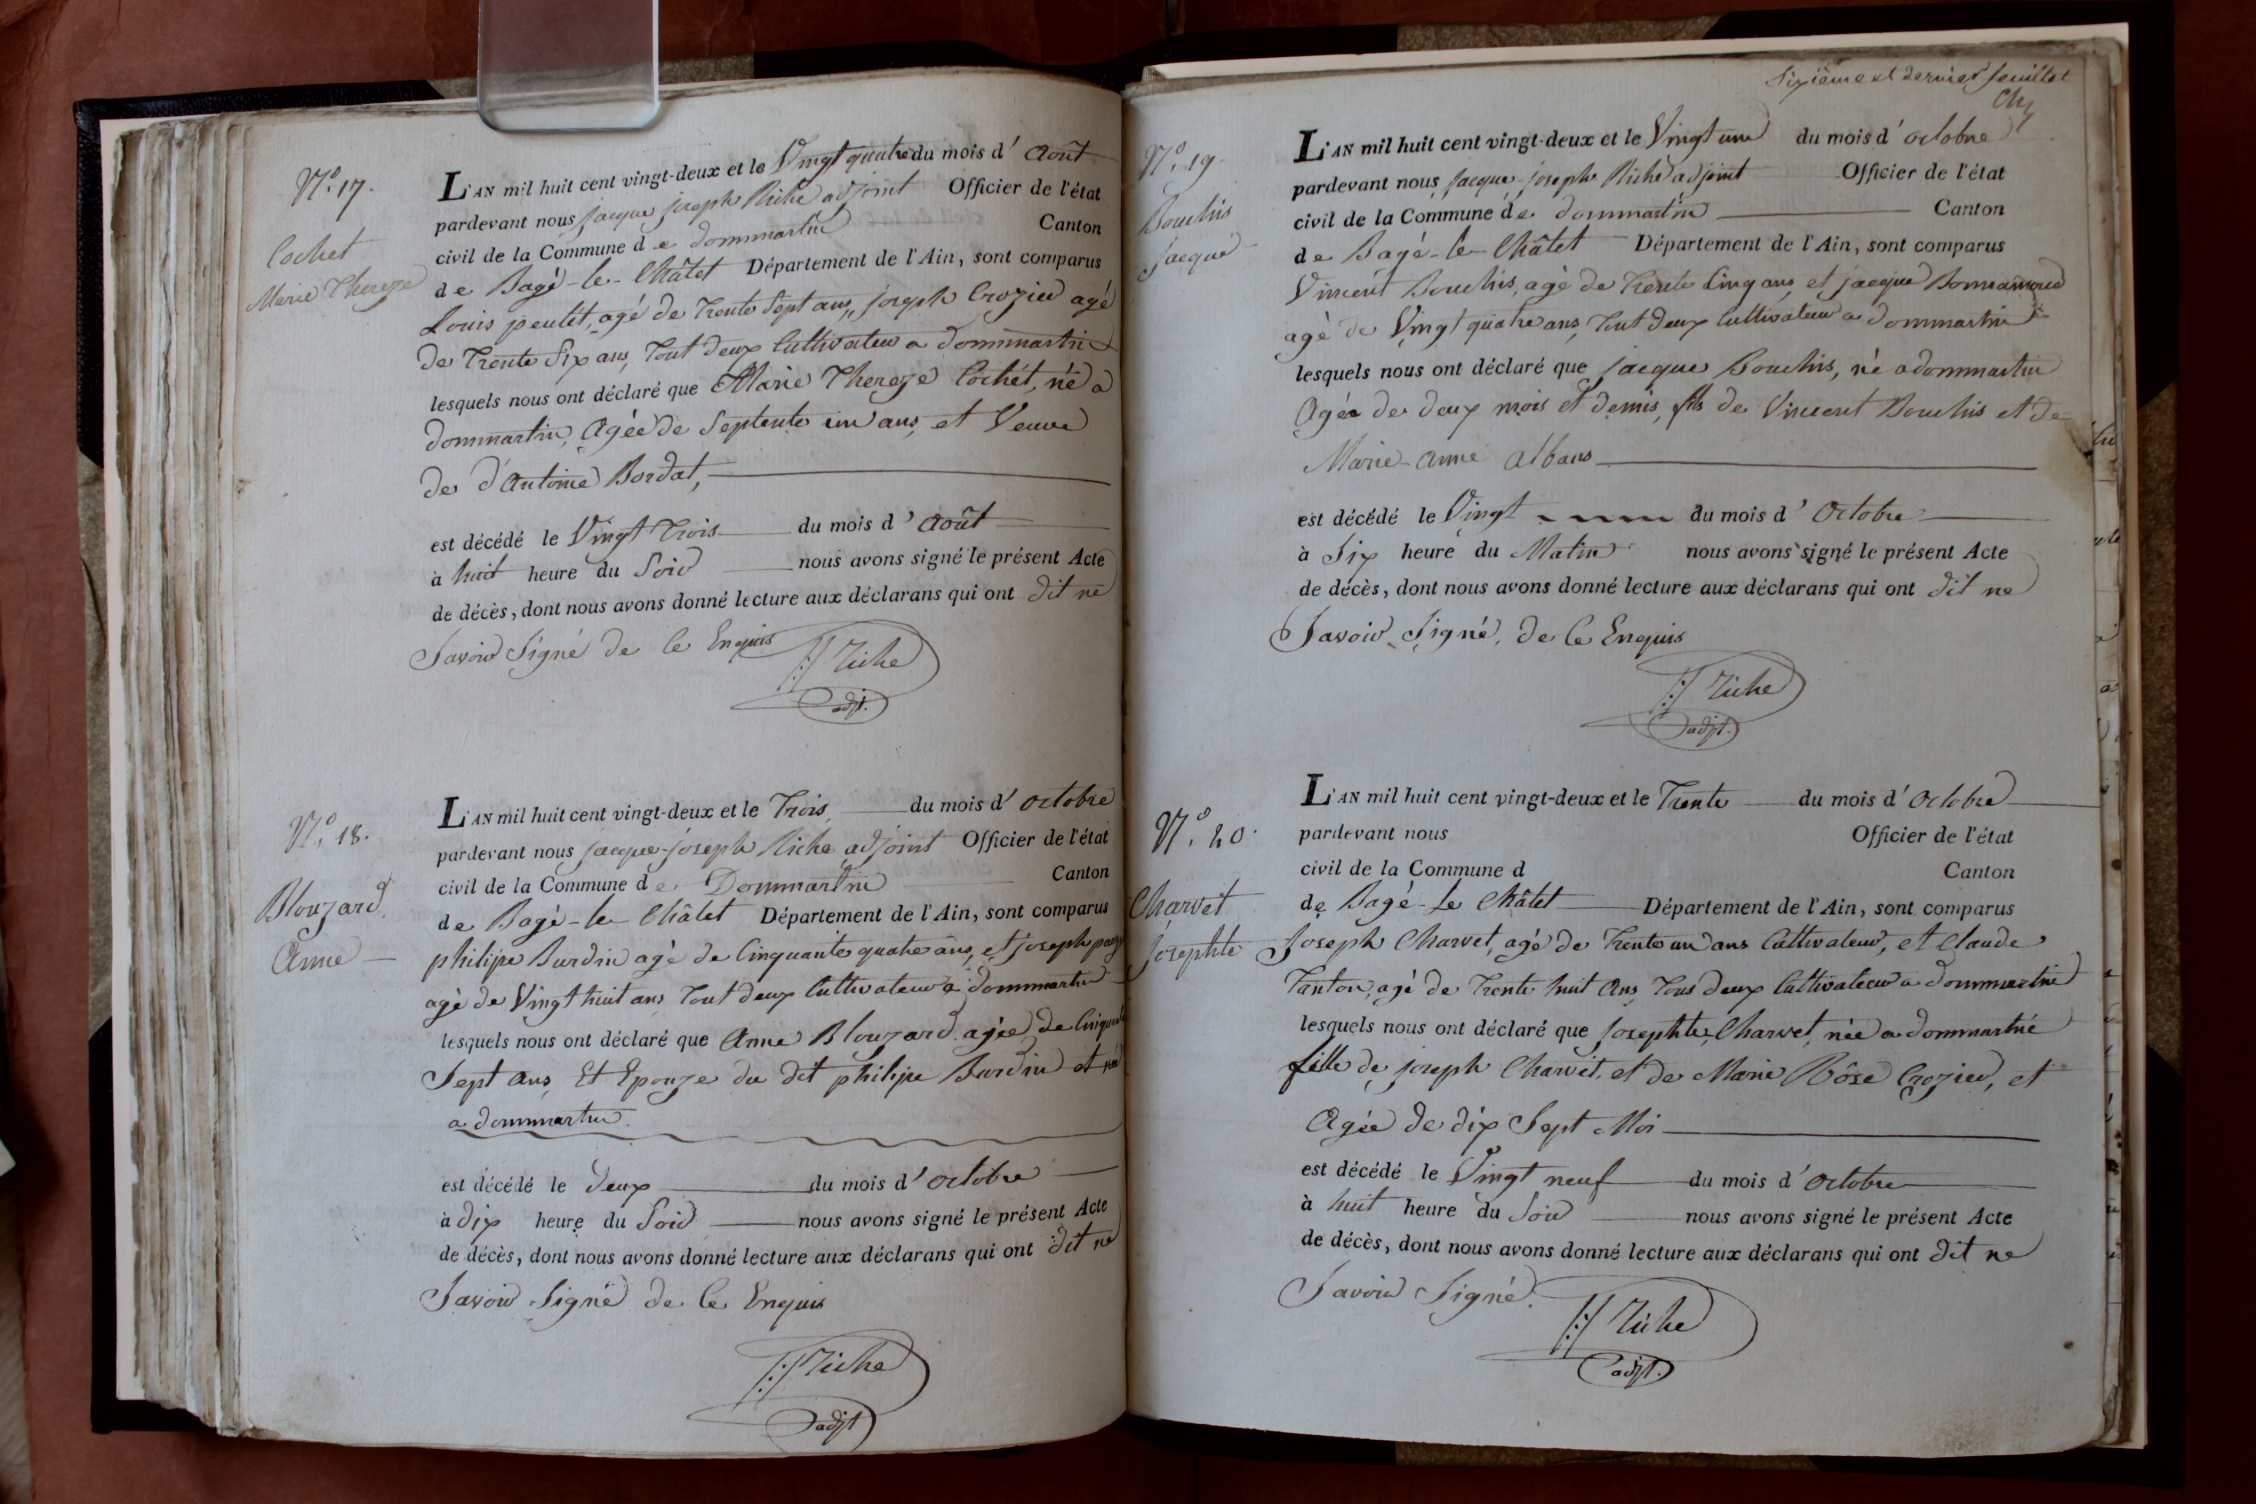 N.° 17.
Cochet
Marie Thereze
L'AN mil huit cent vingt-deux et le Vingt quatre du mois d' Août
pardevant nous jacque joseph Riche adjoint Officier de l'état
civil de la Commune de dommartin Canton
de Bagé-le-Châtel Département de l'Ain, sont comparus
Louis peulet, agé de Trente Sept ans, joseph Crozier agé
de Trente Six ans, Tout deux Cultivateur a dommartin
lesquels nous ont déclaré que Marie Thereze Cochet, né a
dommartin, Agée de Septente un ans, et Veuve
de d'Antoine Bordat,
est décédé le Vingt Trois du mois d' Août
à huit heure du Soir nous avons signé le présent Acte
de décès, dont nous avons donné lecture aux déclarans qui ont dit ne
Savoir Signé de Ce Enquis
Riche
adjt.
N.° 18.
Blouzard
Anne
L'AN mil huit cent vingt-deux et le Trois du mois d' octobre
pardevant nous jacque-joseph Riche adjoint Officier de l'état
civil de la Commune de Dommartin Canton
de Bagé-le-Châtel Département de l'Ain, sont comparus
philipe Burdin agé de Cinquante quatre ans, et joseph
agé de Vingt huit ans Tout deux Cultivateur a dommartin
lesquels nous ont déclaré que Anne Blouzard agée de Cinquante
Sept ans, Et Epouze du dit philipe Burdin et né
a dommartin.
est décédé le deux du mois d' octobre
à dix heure du Soir nous avons signé le présent Acte
de décès, dont nous avons donné lecture aux déclarans qui ont dit ne
Savoir Signé de Ce Enquis
Riche
adjt
Sixième et dernier feuillet
N.° 19.
Bouchis
Jacque
L'AN mil huit cent vingt-deux et le Vingt une du mois d' octobre
pardevant nous jacque-joseph Riche adjoint Officier de l'état
civil de la Commune de dommartin Canton
de Bagé-le-Châtel Département de l'Ain, sont comparus
Vincent Bouchis, agé de Trente Cinq ans, et jacque
agé de Vingt quatre ans, Tout deux Cultivateur a dommartin
lesquels nous ont déclaré que jacque Bouchis, né a dommartin
Agée de deux mois et demis, fils de Vincent Bouchis et de
Marie-Anne Albans
est décédé le Vingt du mois d' Octobre
à Six heure du Matin nous avons signé le présent Acte
de décès, dont nous avons donné lecture aux déclarans qui ont dit ne
Savoir Signé, de Ce Enquis
Riche
adjt.
N.° 20.
Charvet
josephte
L'AN mil huit cent vingt-deux et le Trente du mois d' Octobre
pardevant nous Officier de l'état
civil de la Commune d Canton
de Bagé-Le Châtel Département de l'Ain, sont comparus
Joseph Charvet, agé de Trente un ans Cultivateur, et Claude
Tanton, agé de Trente huit Ans, Tous deux Cultivateur a dommartin
lesquels nous ont déclaré que josephte Charvet, née a dommartin
fille de joseph Charvet, et de Marie Rôse Crozier, et
Agée de dix Sept Moi
est décédé le Vingt neuf du mois d' Octobre
à huit heure du Soir nous avons signé le présent Acte
de décès, dont nous avons donné lecture aux déclarans qui ont dit ne
Savoir Signé.
Riche
adjt.